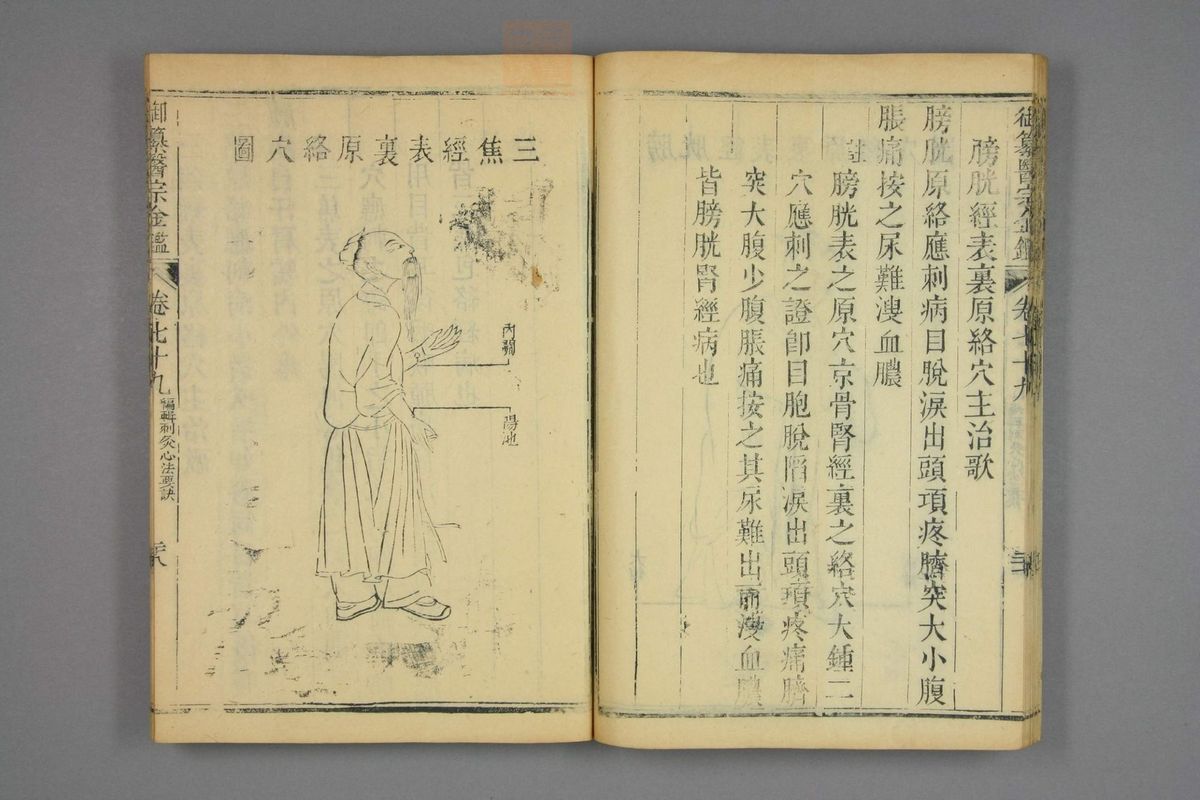 膀胱經表裏原絡穴主治歌
膀胱原絡應刺病目脫淚出頭項疼臍突大小腹
脹痛按之尿難溲血膿
註
膀胱表之原穴京骨腎經裏之絡穴大鍾二
穴應刺之證即目胞脫陷淚出頭項疼痛臍
突大腹少腹脹痛按之其尿難出而溲血膿
皆膀胱腎經病也
御纂醫宗金鑑
卷七十九
三焦經表裏原絡穴圖
內關
陽池
御纂醫宗金鑑
卷七十九
編輯刺灸心法要訣
六